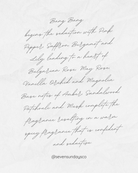 Bang Bang
begins the seduction with Pink
Pepper, Saffron, Bergamot and
Lily leading to a heart of
Bulgarian Rose, May Rose,
Vanilla Orchid and Magnolia.
Base notes of Amber, Sandalwood
Patchouli and Musk complete the
fragrance resulting in a warm
spicy fragrance that is confident
and seductive.